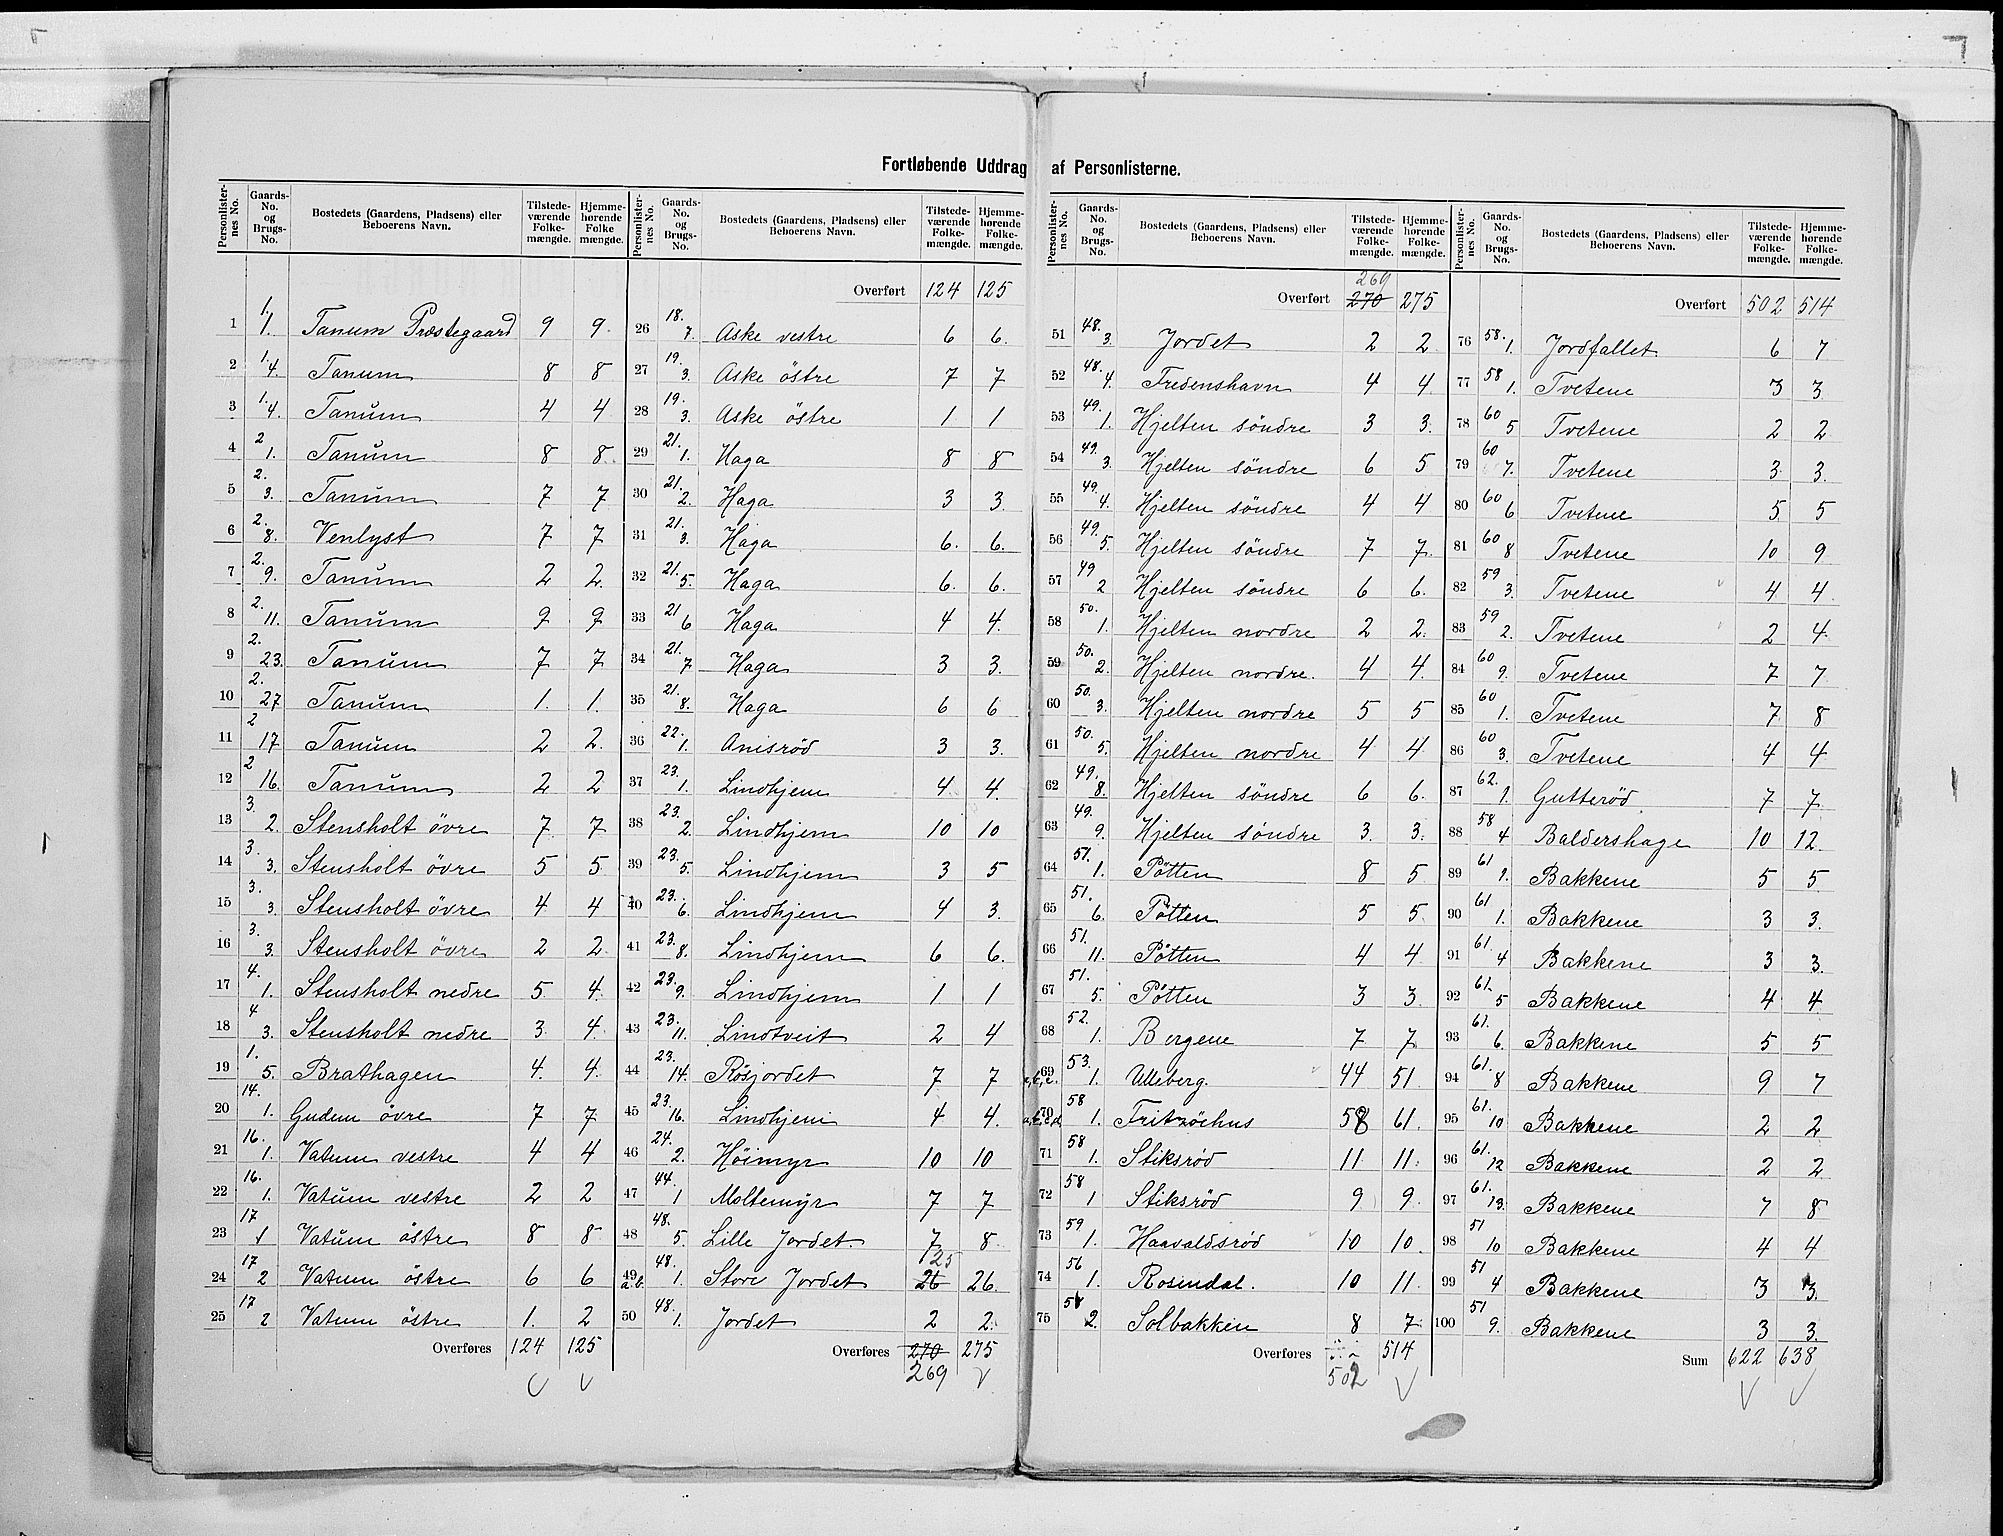 Fortløbende Uddrag af Personlisterne.
Personlister- nes No. | Gaards- No. og Brugs- No. | Bostedets (Gaardens, Pladsens) eller Beboerens Navn. | Tilstede- værende Folke- mængde. | Hjemme- hørende Folke mængde.
1 1. 1. Tanum Præstegaard 9 9.
2 1. 4. Tanum 8 8
3 1. 4. Tanum 4 4
4 2 1. Tanum 8 8
5 2. 3. Tanum 7 7
6 2. 8. Venlyst 7 7
7 2. 9. Tanum 2 2.
8 2. 11. Tanum 9 9
9 2. 23. Tanum 7 7
10 2. 27 Tanum 1. 1.
11 2 17 Tanum 2 2.
12 2 16. Tanum 2 2
13 3. 2. Stensholt övre 7 7
14 3. 3. Stensholt övre 5 5
15 3. 3. Stensholt övre 4 4
16 3. 3. Stensholt övre 2 2
17 4. 1. Stensholt nedre 5 4.
18 4 3. Stensholt nedre 3. 4.
19 1. 5. Brathagen 4. 4.
20 14. 1. Gudem övre 7 7
21 16. 1. Vatum vestre 4 4
22 16. 1. Vatum vestre 2 2
23 17 1 Vatum östre 8 8
24 17 2 Vatum östre 6 6
25 17 2 Vatum östre 1. 2
Overføres 124 125
Personlister- nes No. | Gaards- No. og Brugs- No. | Bostedets (Gaardens, Pladsens) eller Beboerens Navn. | Tilstede- værende Folke- mængde. | Hjemme- hørende Folke- mængde.
Overført 124 125
26 18. 7. Aske vestre 6 6.
27 19. 3. Aske östre 7 7
28 19. 3. Aske östre 1 1
29 21. 1. Haga 8 8
30 21. 2. Haga 3 3.
31 21. 3. Haga 6. 6.
32 21. 5. Haga 6. 6.
33 21 6 Haga 4 4.
34 21. 7. Haga 3 3.
35 21. 8. Haga 6 6
36 22. 1. Anisröd 3 3.
37 23. 1. Lindhjem 4 4.
38 23. 2. Lindhjem 10 10
39 23. 5. Lindhjem 3 5
40 23. 6. Lindhjem 4 3.
41 23. 8. Lindhjem 6 6.
42 23. 9. Lindhjem 1 1
43 23. 11. Lindtveit 2 4
44 23. 14. Rösjordet 7 7
45 23. 16. Lindhjem 4 4.
46 24. 2. Höimyr 10 10
47 44. 1 Moltemyr 7 7
48 48. 5. Lille Jordet. 7 8.
49 a.b. 48. 1. Store Jordet 26 25 26.
50 48. 1. Jordet 2 2.
Overføres 270 275
269
Personlister- nes No. | Gaards- No. og Brugs- No. | Bostedets (Gaardens, Pladsens) eller Beboerens Navn. | Tilstede- værende Folke- mængde. | Hjemme- hørende Folke- mængde.
269
Overført 270 275
51 48. 3. Jordet 2 2.
52 48. 4. Fredenshavn 4 4.
53 49. 1. Hjelten söndre 3 3.
54 49. 3. Hjelten söndre 6 5
55 49. 4. Hjelten söndre 4 4
56 49. 5. Hjelten söndre 7 7.
57 49 2 Hjelten söndre 6 6.
58 50. 1. Hjelten nordre 2 2.
59 50. 2. Hjelten nordre. 4 4.
60 50. 3. Hjelten nordre 5 5
61 50. 5. Hjelten nordre 4 4.
62 49. 8. Hjelten söndre 6 6.
63 49. 9. Hjelten söndre 3. 3.
64 51. 1. Pötten 8 5
65 51. 6. Pötten 5 5.
66 51. 11. Pötten 4 4
67 51. 5. Pötten 3 3.
68 52. 1. Bergene 7 7.
69 53. 1. Ulleberg. 44 51.
70 58 1. Fritzöehus 58 61.
71 58 1. Stiksröd 11 11.
72 58 1 Stiksröd 9 9.
73 59 1. Haavaldsröd 10 10.
74 56 1. Rosendal. 10 11.
75 2. Solbakken 8 7.
Overføres 514
502
Personlister- nes No. | Gaards- No. og Brugs- No. | Bostedets (Gaardens, Pladsens) eller Beboerens Navn. | Tilstede- værende Folke- mængde. | Hjemme- hørende Folke- mængde.
Overført 502 514
76 58. 1. Jordfallet 6 7
77 58 1. Tvetene 3 3
78 60 5 Tvetene 2 2
79 60 7. Tvetene 3. 3.
80 60 6 Tvetene 5. 5
81 60 8 Tvetene 10 9
82 59 3. Tvetene 4 4.
83 59 2. Tvetene 2 4.
84 60 9. Tvetene 7 7
85 60 1. Tvetene 7 8
86 60 3. Tvetene 4 4
87 62. 1. Gutteröd 7 7.
88 58 4 Baldershage 10 12.
89 61 1. Bakkene 5 5
90 61 1. Bakkene 3 3.
91 61. 4 Bakkene 3 3.
92 61. 5 Bakkene 4 4
93 61. 6. Bakkene 5 5
94 61. 8 Bakkene 9 7
95 61. 10 Bakkene 2 2
96 61. 12 Bakkene 2 2.
97 61. 13. Bakkene 7 8
98 51 10 Bakkene 4 4
99 51 4 Bakkene 3 3.
100 51 9. Bakkene 3 3.
Sum 622 638